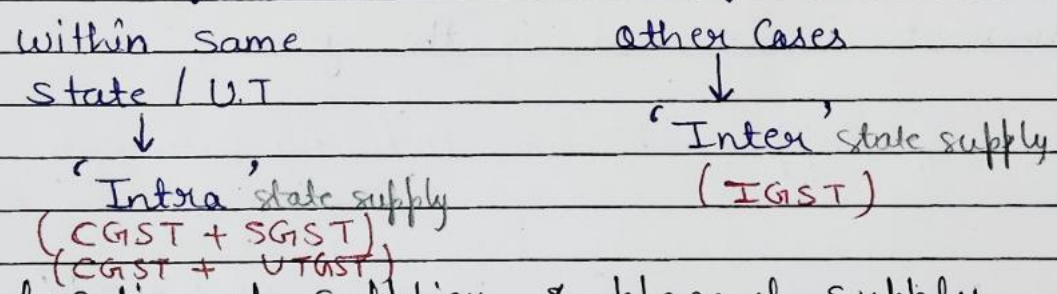 Within Same
State / U.T
↓
'Intra' state supply
(CGST + SGST)
(CGST + UTGST)
Other Cases
↓
'Inter' state supply
(IGST)
supply